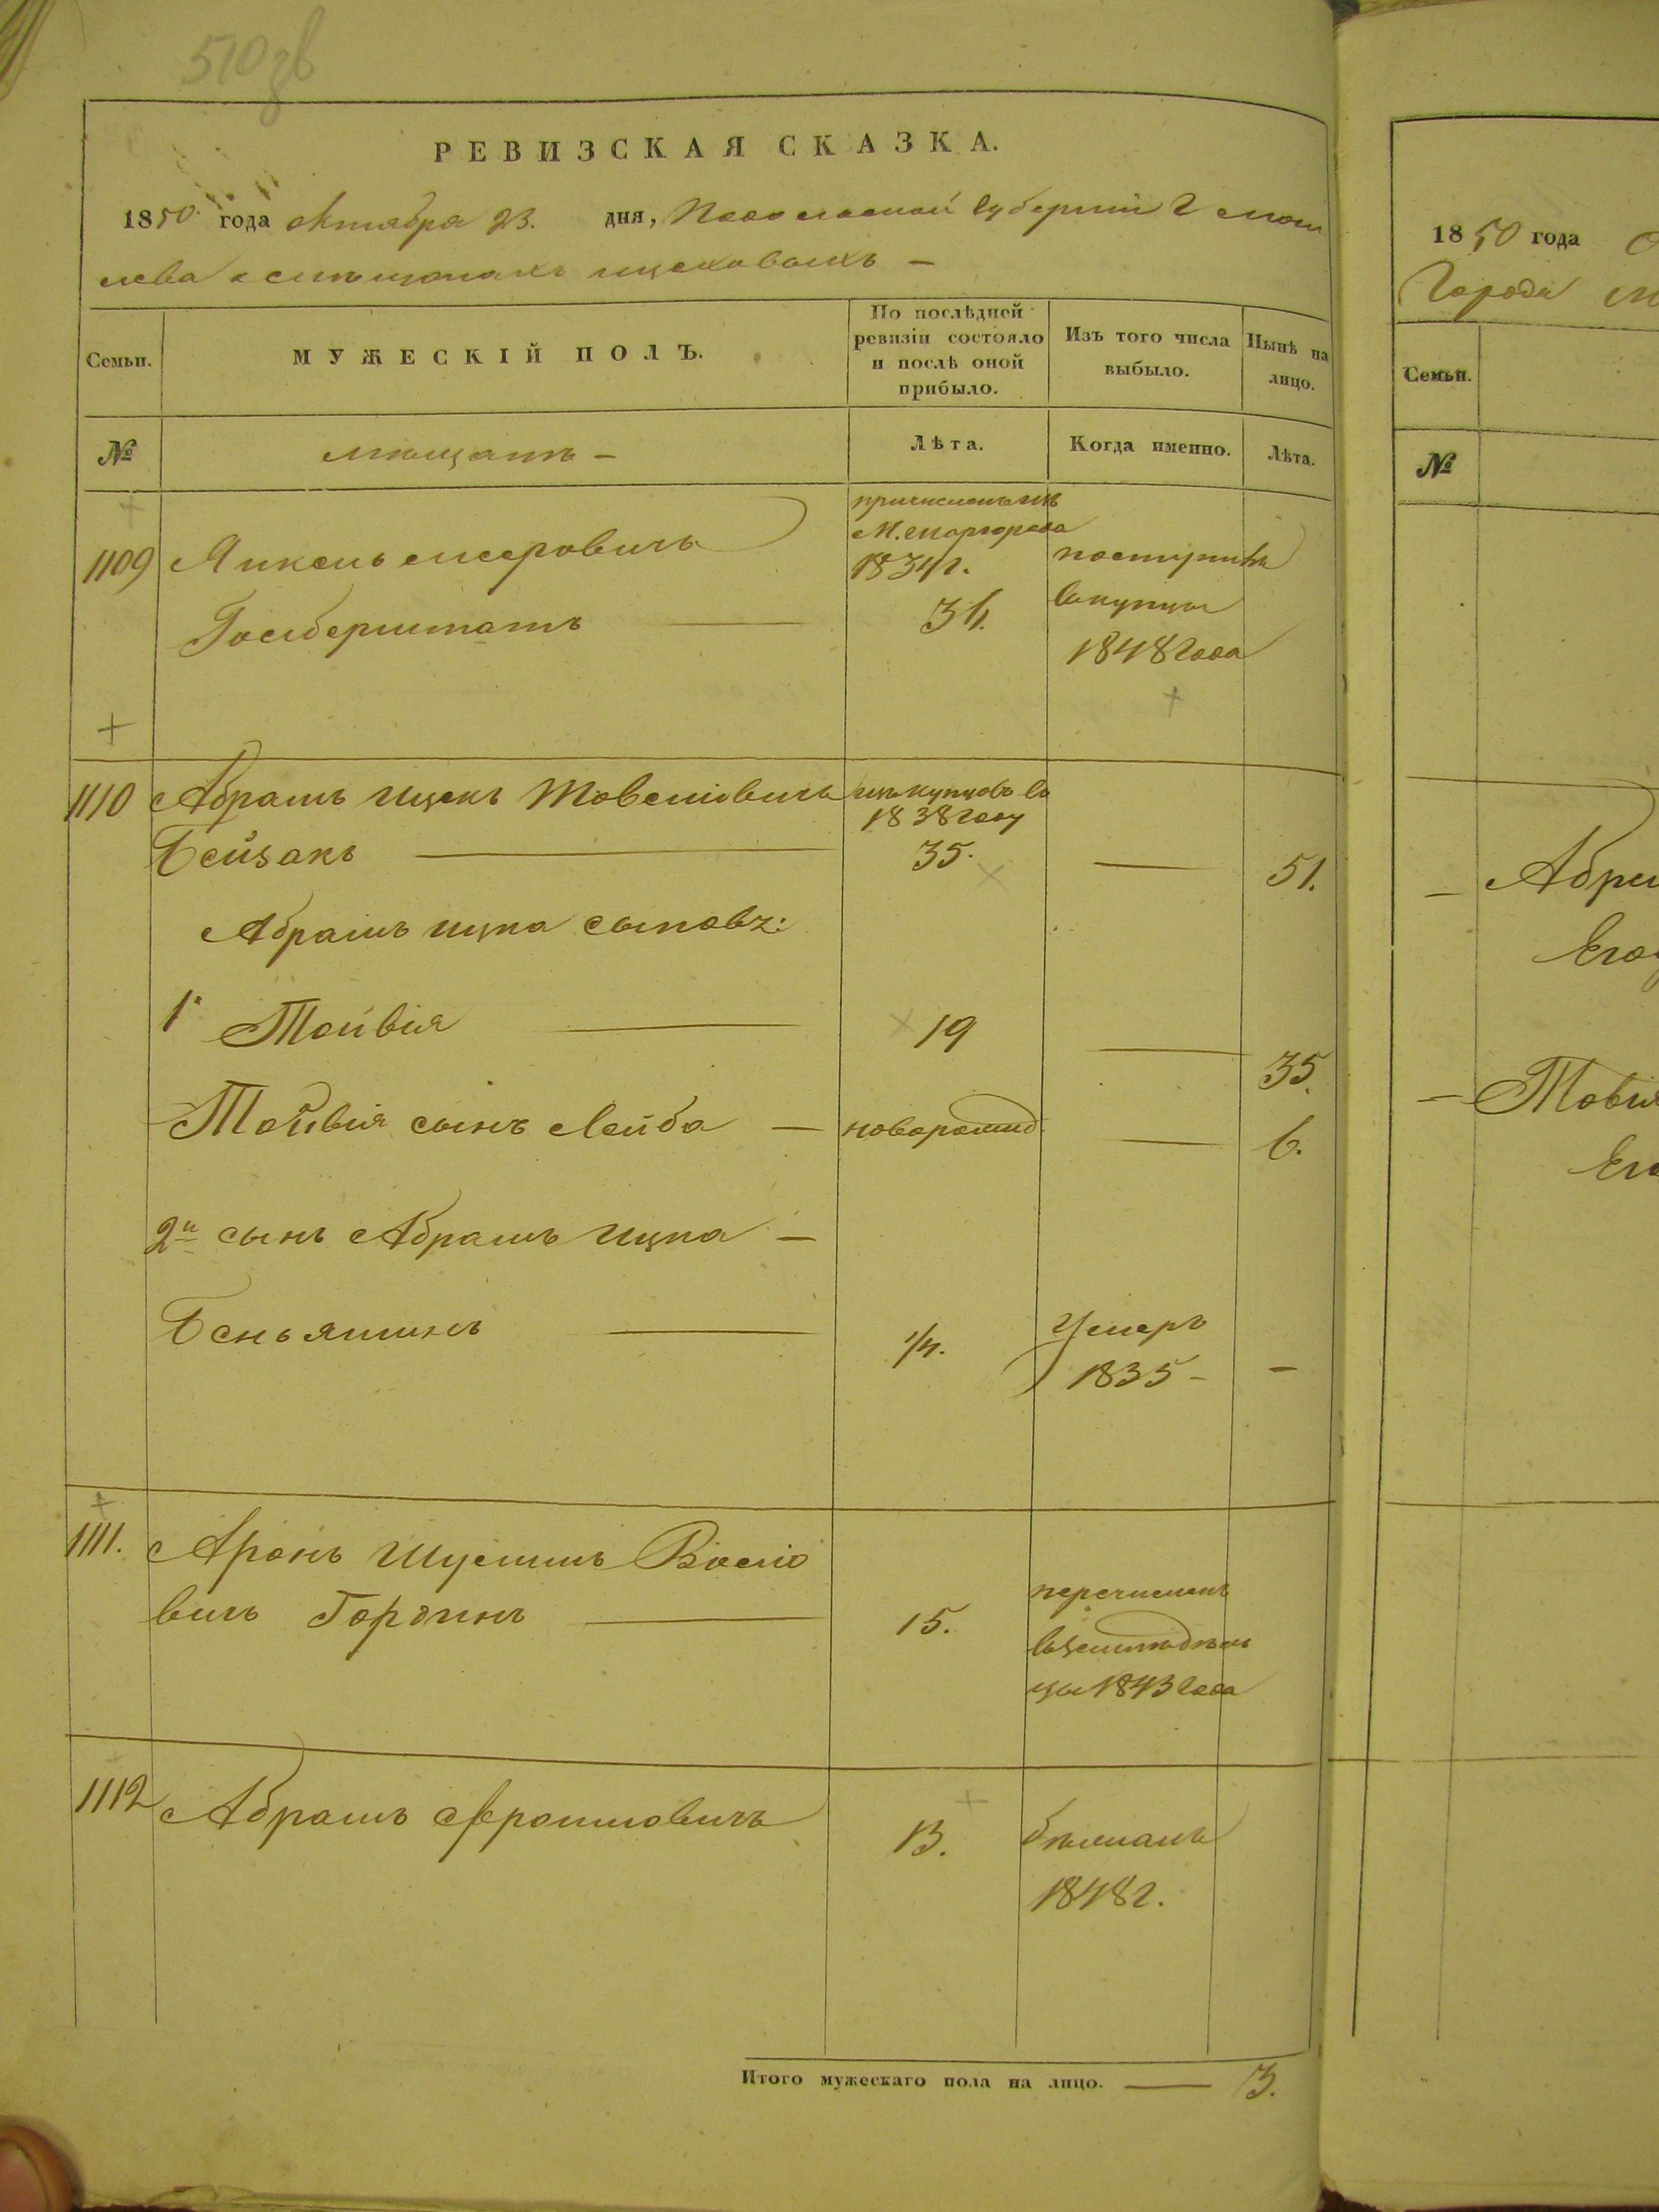 510 зв
РЕВИЗСКАЯ СКАЗКА.
1850 года октября 23. дня, Подольской Губернии Г Моги
лева о мещанахъ
Семьи.
МУЖЕСКІЙ ПОЛЪ.
По послѣдней ревизіи состояло и послѣ оной прибыло.
Изъ того числа выбыло.
Нынѣ на лицо.
№
мещанъ –
Лѣта.
Когда именно.
Лѣта.
1109 Янкель Мееровичъ
Гольберштатъ
причисленъ изъ
1834 г.
36.
поступилъ
въ купцы
1848 года
1110 Абрамъ Ицекъ Товеліовичъ
Бейзакъ
изъ купцовъ въ
1838 году
35.
51.
Абрамъ Ицка сыновъ:
1й Тойвія 19 35.
Тойвія сынъ Лейба – новорожд. 6.
2й сынъ Абрамъ Ицка –
Беньяминъ 1/4. Умеръ
1835 – –
1111. Аронъ Шулимъ
вичъ Гординъ 15.
перечисленъ
въ земледѣль
цы 1843 года
1112 Абрамъ Фроимовичъ 13.
1848 г.
Итого мужескаго пола на лицо. 3.
1850 года
Города
Семьи.
№
– Товія